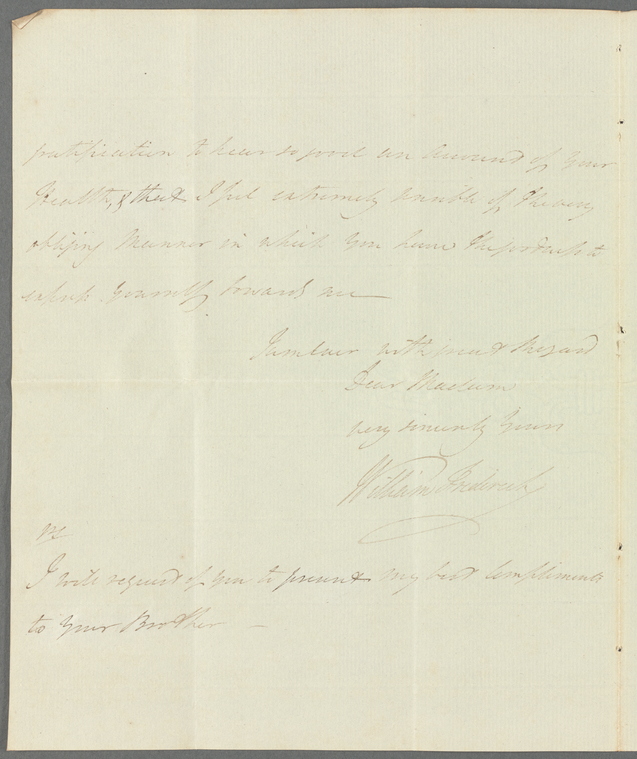 gratification to hear so good an Account of Your
Health, & that I feel extremely sensible of the very
obliging Manner in which You have the goodness to
express Yourself towards me —
I am ever with great Regard
Dear Madam
very sincerely Yours
William Frederick
PS
I will request of You to present my best Compliments
to Your Brother —